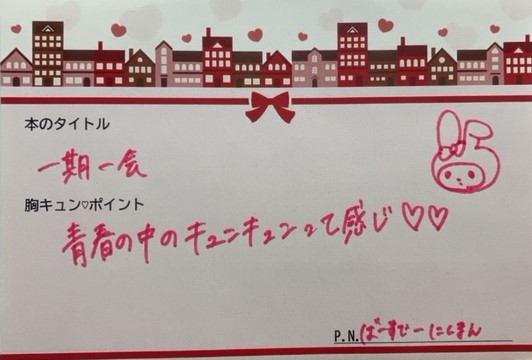 本のタイトル
一期一会
胸キュン♡ポイント
青春の中のキュンキュンって感じ♡♡
P.N.ばーすでーにしまん